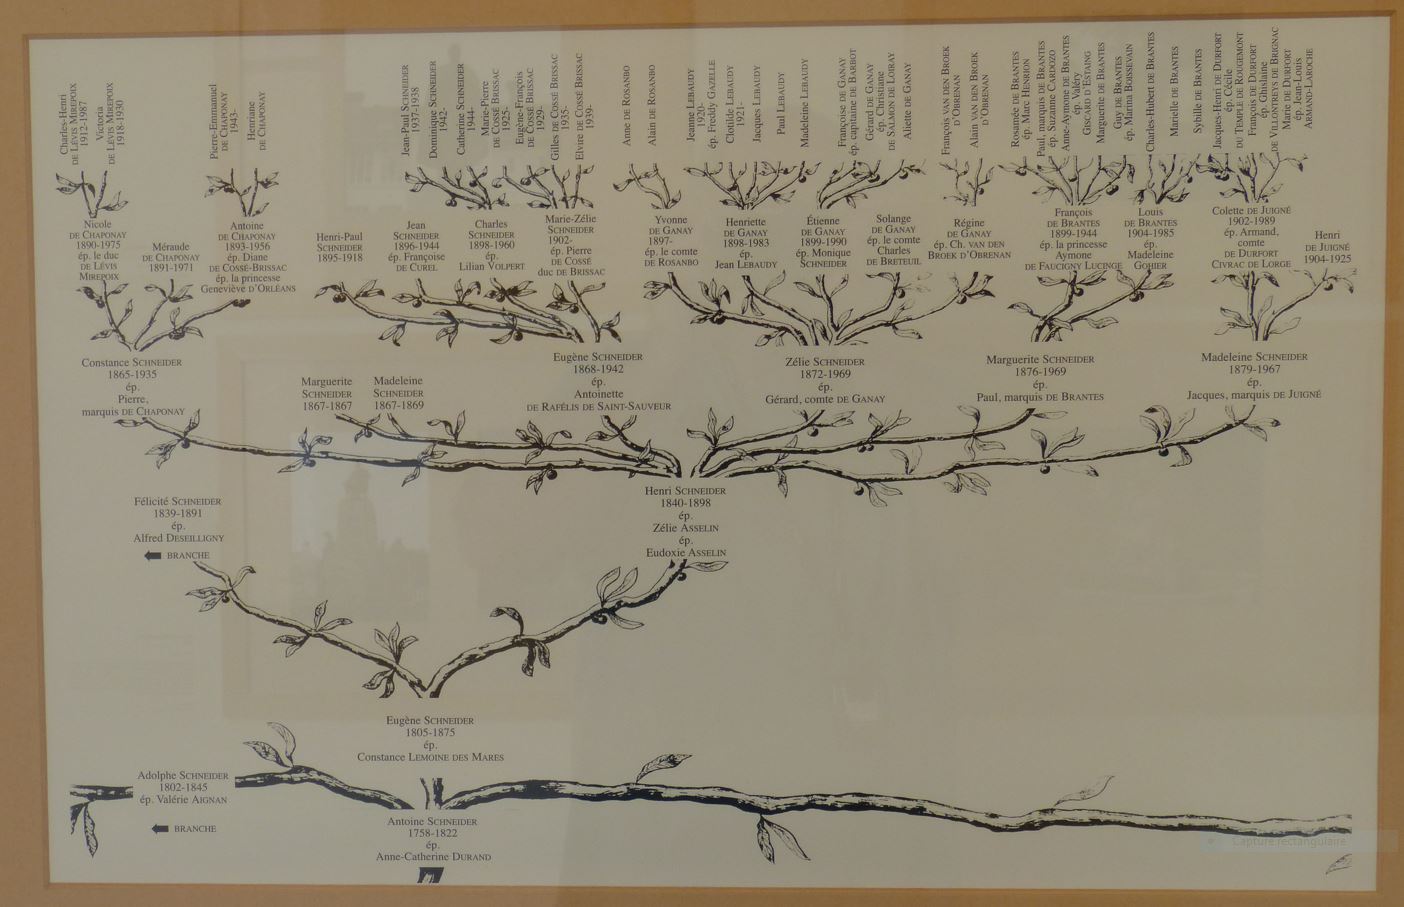 Charles-Henri
DE LÉVIS MIREPOIX
1912-1987
Victoria
DE LÉVIS MIREPOIX
1918-1930
Pierre-Emmanuel
DE CHAPONAY
1943-
Henriane
DE CHAPONAY
Jean-Paul SCHNEIDER
1937-1938
Dominique SCHNEIDER
1942-
Catherine SCHNEIDER
1944-
Marie-Pierre
DE COSSÉ BRISSAC
1925-
Eugène-François
DE COSSÉ BRISSAC
1929-
Gilles DE COSSÉ BRISSAC
1935-
Elvire DE COSSÉ BRISSAC
1939-
Anne DE ROSANBO
Alain DE ROSANBO
Jeanne LEBAUDY
1920-
ép. Freddy GAZELLE
Clotilde LEBAUDY
1921-
Jacques LEBAUDY
Paul LEBAUDY
Madeleine LEBAUDY
Françoise DE GANAY
ép. capitaine DE BARBOT
Gérard DE GANAY
ép. Christiane
DE SALMON DE LOIRAY
Aliette DE GANAY
François VAN DEN BROEK
D'OBRENAN
Alain VAN DEN BROEK
D'OBRENAN
Rosamée DE BRANTES
ép. Marc HENRION
Paul, marquis DE BRANTES
ép. Suzanne CARDOZO
Anne-Aymone DE BRANTES
ép. Valéry
GISCARD D'ESTAING
Marguerite DE BRANTES
Guy DE BRANTES
ép. Marina BOISSEVAIN
Charles-Hubert DE BRANTES
Marielle DE BRANTES
Sybille DE BRANTES
Jacques-Henri DE DURFORT
ép. Cécile
DU TEMPLE DE ROUGEMONT
François DE DURFORT
ép. Ghislaine
DE VILLONTREYS DE BRIGNAC
Marie DE DURFORT
ép. Jean-Louis
ARMAND-LAROCHE
Nicole
DE CHAPONAY
1890-1975
ép. le duc
DE LÉVIS
MIREPOIX
Méraude
DE CHAPONAY
1891-1971
Antoine
DE CHAPONAY
1893-1956
ép. Diane
DE COSSÉ-BRISSAC
ép. la princesse
Geneviève D'ORLÉANS
Henri-Paul
SCHNEIDER
1895-1918
Jean
SCHNEIDER
1896-1944
ép. Françoise
DE CUREL
Charles
SCHNEIDER
1898-1960
ép.
Lilian VOLPERT
Marie-Zélie
SCHNEIDER
1902-
ép. Pierre
DE COSSÉ
duc DE BRISSAC
Yvonne
DE GANAY
1897-
ép. le comte
DE ROSANBO
Henriette
DE GANAY
1898-1983
ép.
Jean LEBAUDY
Étienne
DE GANAY
1899-1990
ép. Monique
SCHNEIDER
Solange
DE GANAY
ép. le comte
Charles
DE BRETEUIL
Régine
DE GANAY
ép. Ch. VAN DEN
BROEK D'OBRENAN
François
DE BRANTES
1899-1944
ép. la princesse
Aymone
DE FAUCIGNY LUCINGE
Louis
DE BRANTES
1904-1985
ép.
Madeleine
GOHIER
Colette DE JUIGNÉ
1902-1989
ép. Armand,
comte
DE DURFORT
CIVRAC DE LORGE
Henri
DE JUIGNÉ
1904-1925
Constance SCHNEIDER
1865-1935
ép.
Pierre,
marquis DE CHAPONAY
Marguerite
SCHNEIDER
1867-1867
Madeleine
SCHNEIDER
1867-1869
Eugène SCHNEIDER
1868-1942
ép.
Antoinette
DE RAFÉLIS DE SAINT-SAUVEUR
Zélie SCHNEIDER
1872-1969
ép.
Gérard, comte DE GANAY
Marguerite SCHNEIDER
1876-1969
ép.
Paul, marquis DE BRANTES
Madeleine SCHNEIDER
1879-1967
ép.
Jacques, marquis DE JUIGNÉ
Félicité SCHNEIDER
1839-1891
ép.
Alfred DESEILLIGNY
BRANCHE
Henri SCHNEIDER
1840-1898
ép.
Zélie ASSELIN
ép.
Eudoxie ASSELIN
Eugène SCHNEIDER
1805-1875
ép.
Constance LEMOINE DES MARES
Adolphe SCHNEIDER
1802-1845
ép. Valérie AIGNAN
BRANCHE
Antoine SCHNEIDER
1758-1822
ép.
Anne-Catherine DURAND
Capture rectangulaire